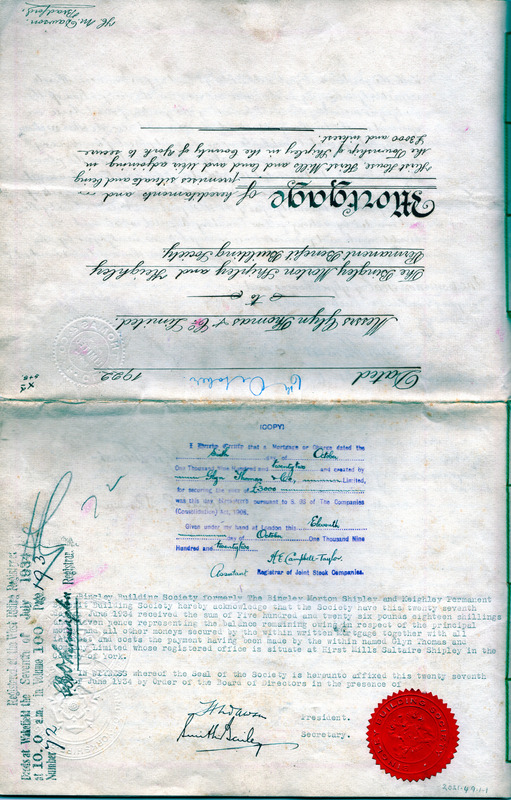 Dated 6th October 1922.
Messrs Glyn Thomas & Co. Limited.
to
The Bingley Morton Shipley and Keighley
Permanent Benefit Building Society
Mortgage of hereditaments and
premises situate and being
Hirst House Hirst Mills and land and adjoining in
the Township of Shipley in the County of York to secure
£3000 and interest.
H. M. Dawson.
Bradford.
(COPY)
I Hereby Certify that a Mortgage or Charge dated the
Sixth day of October
One Thousand Nine Hundred and twentytwo and created by
Glyn Thomas & Co., Limited,
for securing the sum of £3000
was this day pursuant to S. 93 of The Companies
(Consolidation) Act, 1908.
Given under my hand at London this Eleventh
day of October One Thousand Nine
Hundred and twentytwo
A E Campbell-Taylor.
Assistant Registrar of Joint Stock Companies.
Bingley Building Society formerly The Bingley Morton Shipley and Keighley Permanent
Building Society hereby acknowledge that the Society have this twenty seventh
June 1934 received the sum of Five hundred and twenty six pounds eighteen shillings
pence representing the balance remaining owing in respect of the principal
all other moneys secured by the within written Mortgage together with all
and costs the payment having been made by the within named Glyn Thomas and
Limited whose registered office is situate at Hirst Mills Saltaire Shipley in the
of York.
WITNESS whereof the Seal of the Society is hereunto affixed this twenty seventh
June 1934 by Order of the Board of Directors in the presence of
H M Dawson President.
Smith Bailey Secretary.
Registrar of the West Riding Registrar
Deeds at Wakefield the Second of July 1934
at 10.0 a.m. in Volume 100 Page 193
Number 72
Registrar.
2021.49.1.1